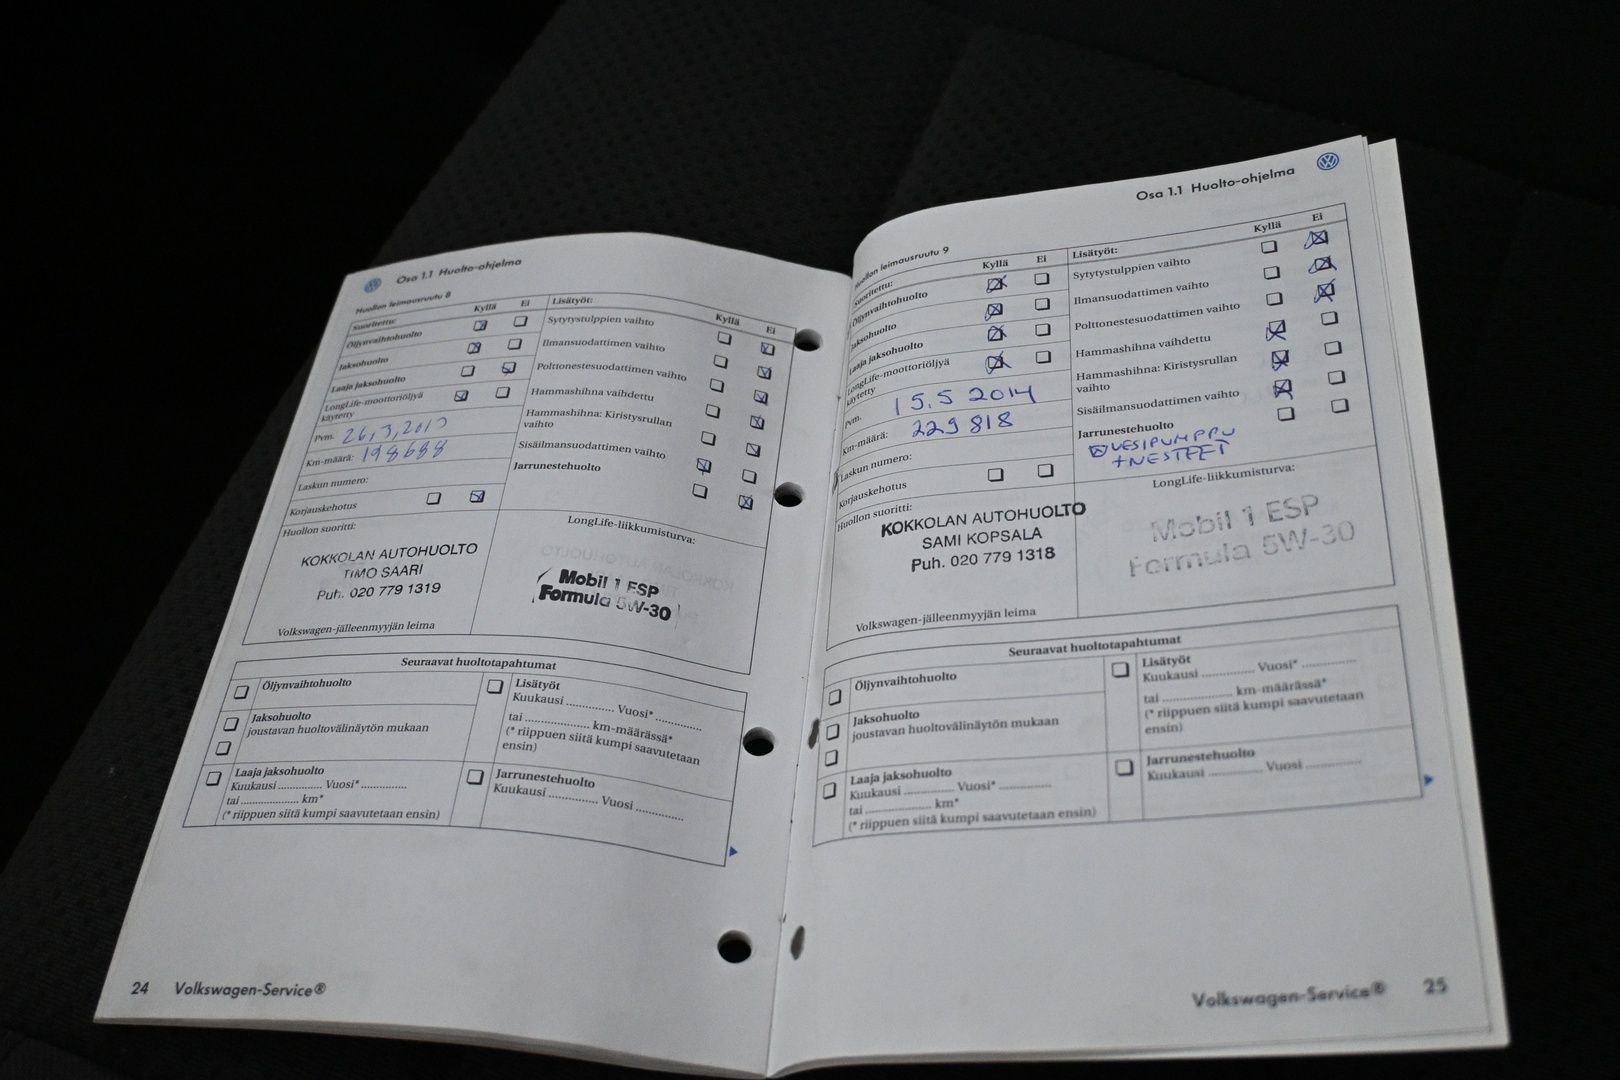 Osa 1.1 Huolto-ohjelma
Huollon leimausruutu 8
Suoritettu: Kyllä Ei
Öljynvaihtohuolto
Jaksohuolto
Laaja jaksohuolto
LongLife-moottoriöljyä
käytetty
Pvm.
Km-määrä: 198688
Laskun numero:
Korjauskehotus
Huollon suoritti:
KOKKOLAN AUTOHUOLTO
TIMO SAARI
Puh. 020 779 1319
Volkswagen-jälleenmyyjän leima
Lisätyöt: Kyllä Ei
Sytytystulppien vaihto
Ilmansuodattimen vaihto
Polttonestesuodattimen vaihto
Hammashihna vaihdettu
Hammashihna: Kiristysrullan
vaihto
Sisäilmansuodattimen vaihto
Jarrunestehuolto
LongLife-liikkumisturva:
Mobil 1 ESP
Formula 5W-30
Seuraavat huoltotapahtumat
Öljynvaihtohuolto
Jaksohuolto
joustavan huoltovälinäytön mukaan
Laaja jaksohuolto
Kuukausi .............. Vuosi* ..............
tai .................... km*
(* riippuen siitä kumpi saavutetaan ensin)
Lisätyöt
Kuukausi .............. Vuosi* ..............
tai .................... km-määrässä*
(* riippuen siitä kumpi saavutetaan
ensin)
Jarrunestehuolto
Kuukausi .............. Vuosi ..............
24 Volkswagen-Service®
Osa 1.1 Huolto-ohjelma
Huollon leimausruutu 9
Suoritettu: Kyllä Ei
Öljynvaihtohuolto
Jaksohuolto
Laaja jaksohuolto
LongLife-moottoriöljyä
käytetty
Pvm. 15.5 2014
Km-määrä: 229818
Laskun numero:
Korjauskehotus
Huollon suoritti:
KOKKOLAN AUTOHUOLTO
SAMI KOPSALA
Puh. 020 779 1318
Volkswagen-jälleenmyyjän leima
Lisätyöt: Kyllä Ei
Sytytystulppien vaihto
Ilmansuodattimen vaihto
Polttonestesuodattimen vaihto
Hammashihna vaihdettu
Hammashihna: Kiristysrullan
vaihto
Sisäilmansuodattimen vaihto
Jarrunestehuolto
VESIPUMPPU
+NESTEET
LongLife-liikkumisturva:
Mobil 1 ESP
Formula 5W-30
Seuraavat huoltotapahtumat
Öljynvaihtohuolto
Jaksohuolto
joustavan huoltovälinäytön mukaan
Laaja jaksohuolto
Kuukausi .............. Vuosi* ..............
tai .................... km*
(* riippuen siitä kumpi saavutetaan ensin)
Lisätyöt
Kuukausi .............. Vuosi* ..............
tai .................... km-määrässä*
(* riippuen siitä kumpi saavutetaan
ensin)
Jarrunestehuolto
Kuukausi .............. Vuosi ..............
Volkswagen-Service® 25